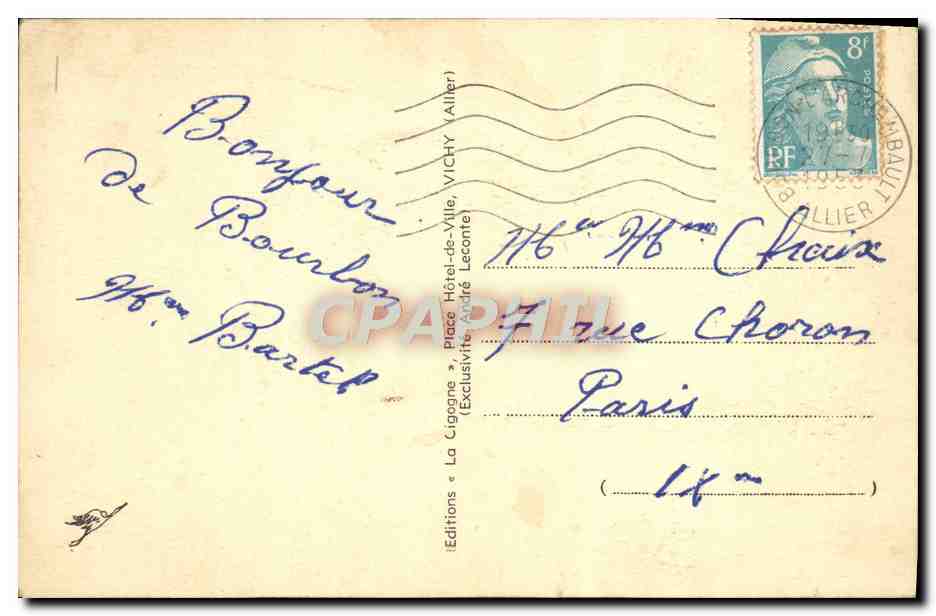 Bonjour
de Bourbon
Mme Bartel
Editions « La Cigogne », Place Hôtel-de-Ville, VICHY (Allier)
(Exclusivité André Leconte)
8f
RF
BOURBON-L'ARCHAMBAULT
27-7
195
ALLIER
Mr Mme Chaix
7 rue Choron
Paris
(IXme)
CPAPHIL